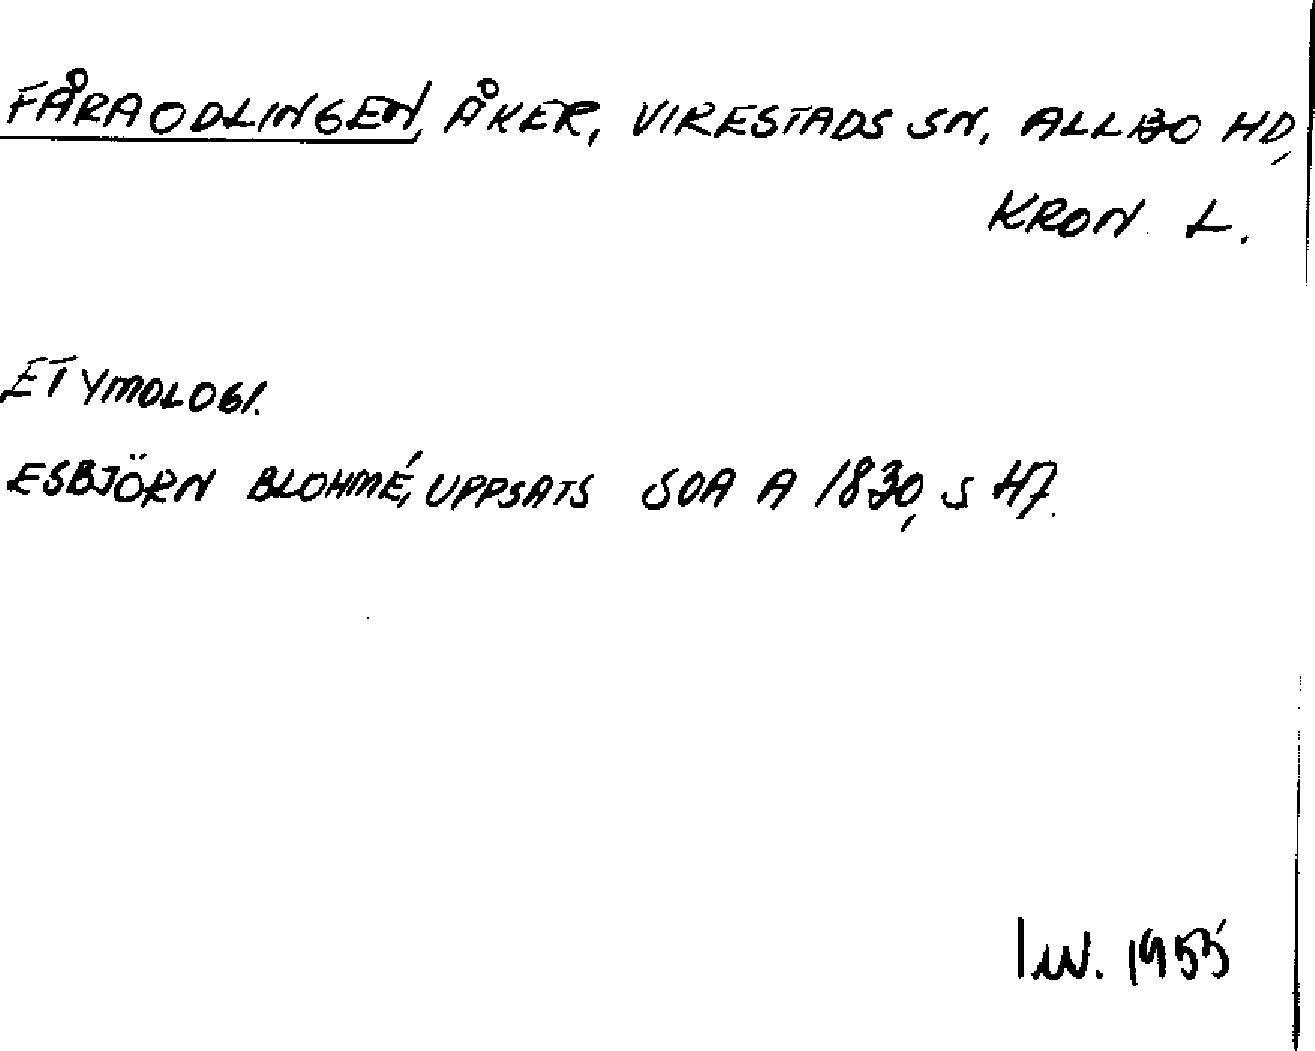 FÅRAODLINGEN, ÅKER, VIRESTADS SN, ALLBO HD,
KRON. L.
ETYMOLOGI.
ESBJÖRN BLOHMÉ, UPPSATS SOA A 1830, S 47.
Inv. 1955